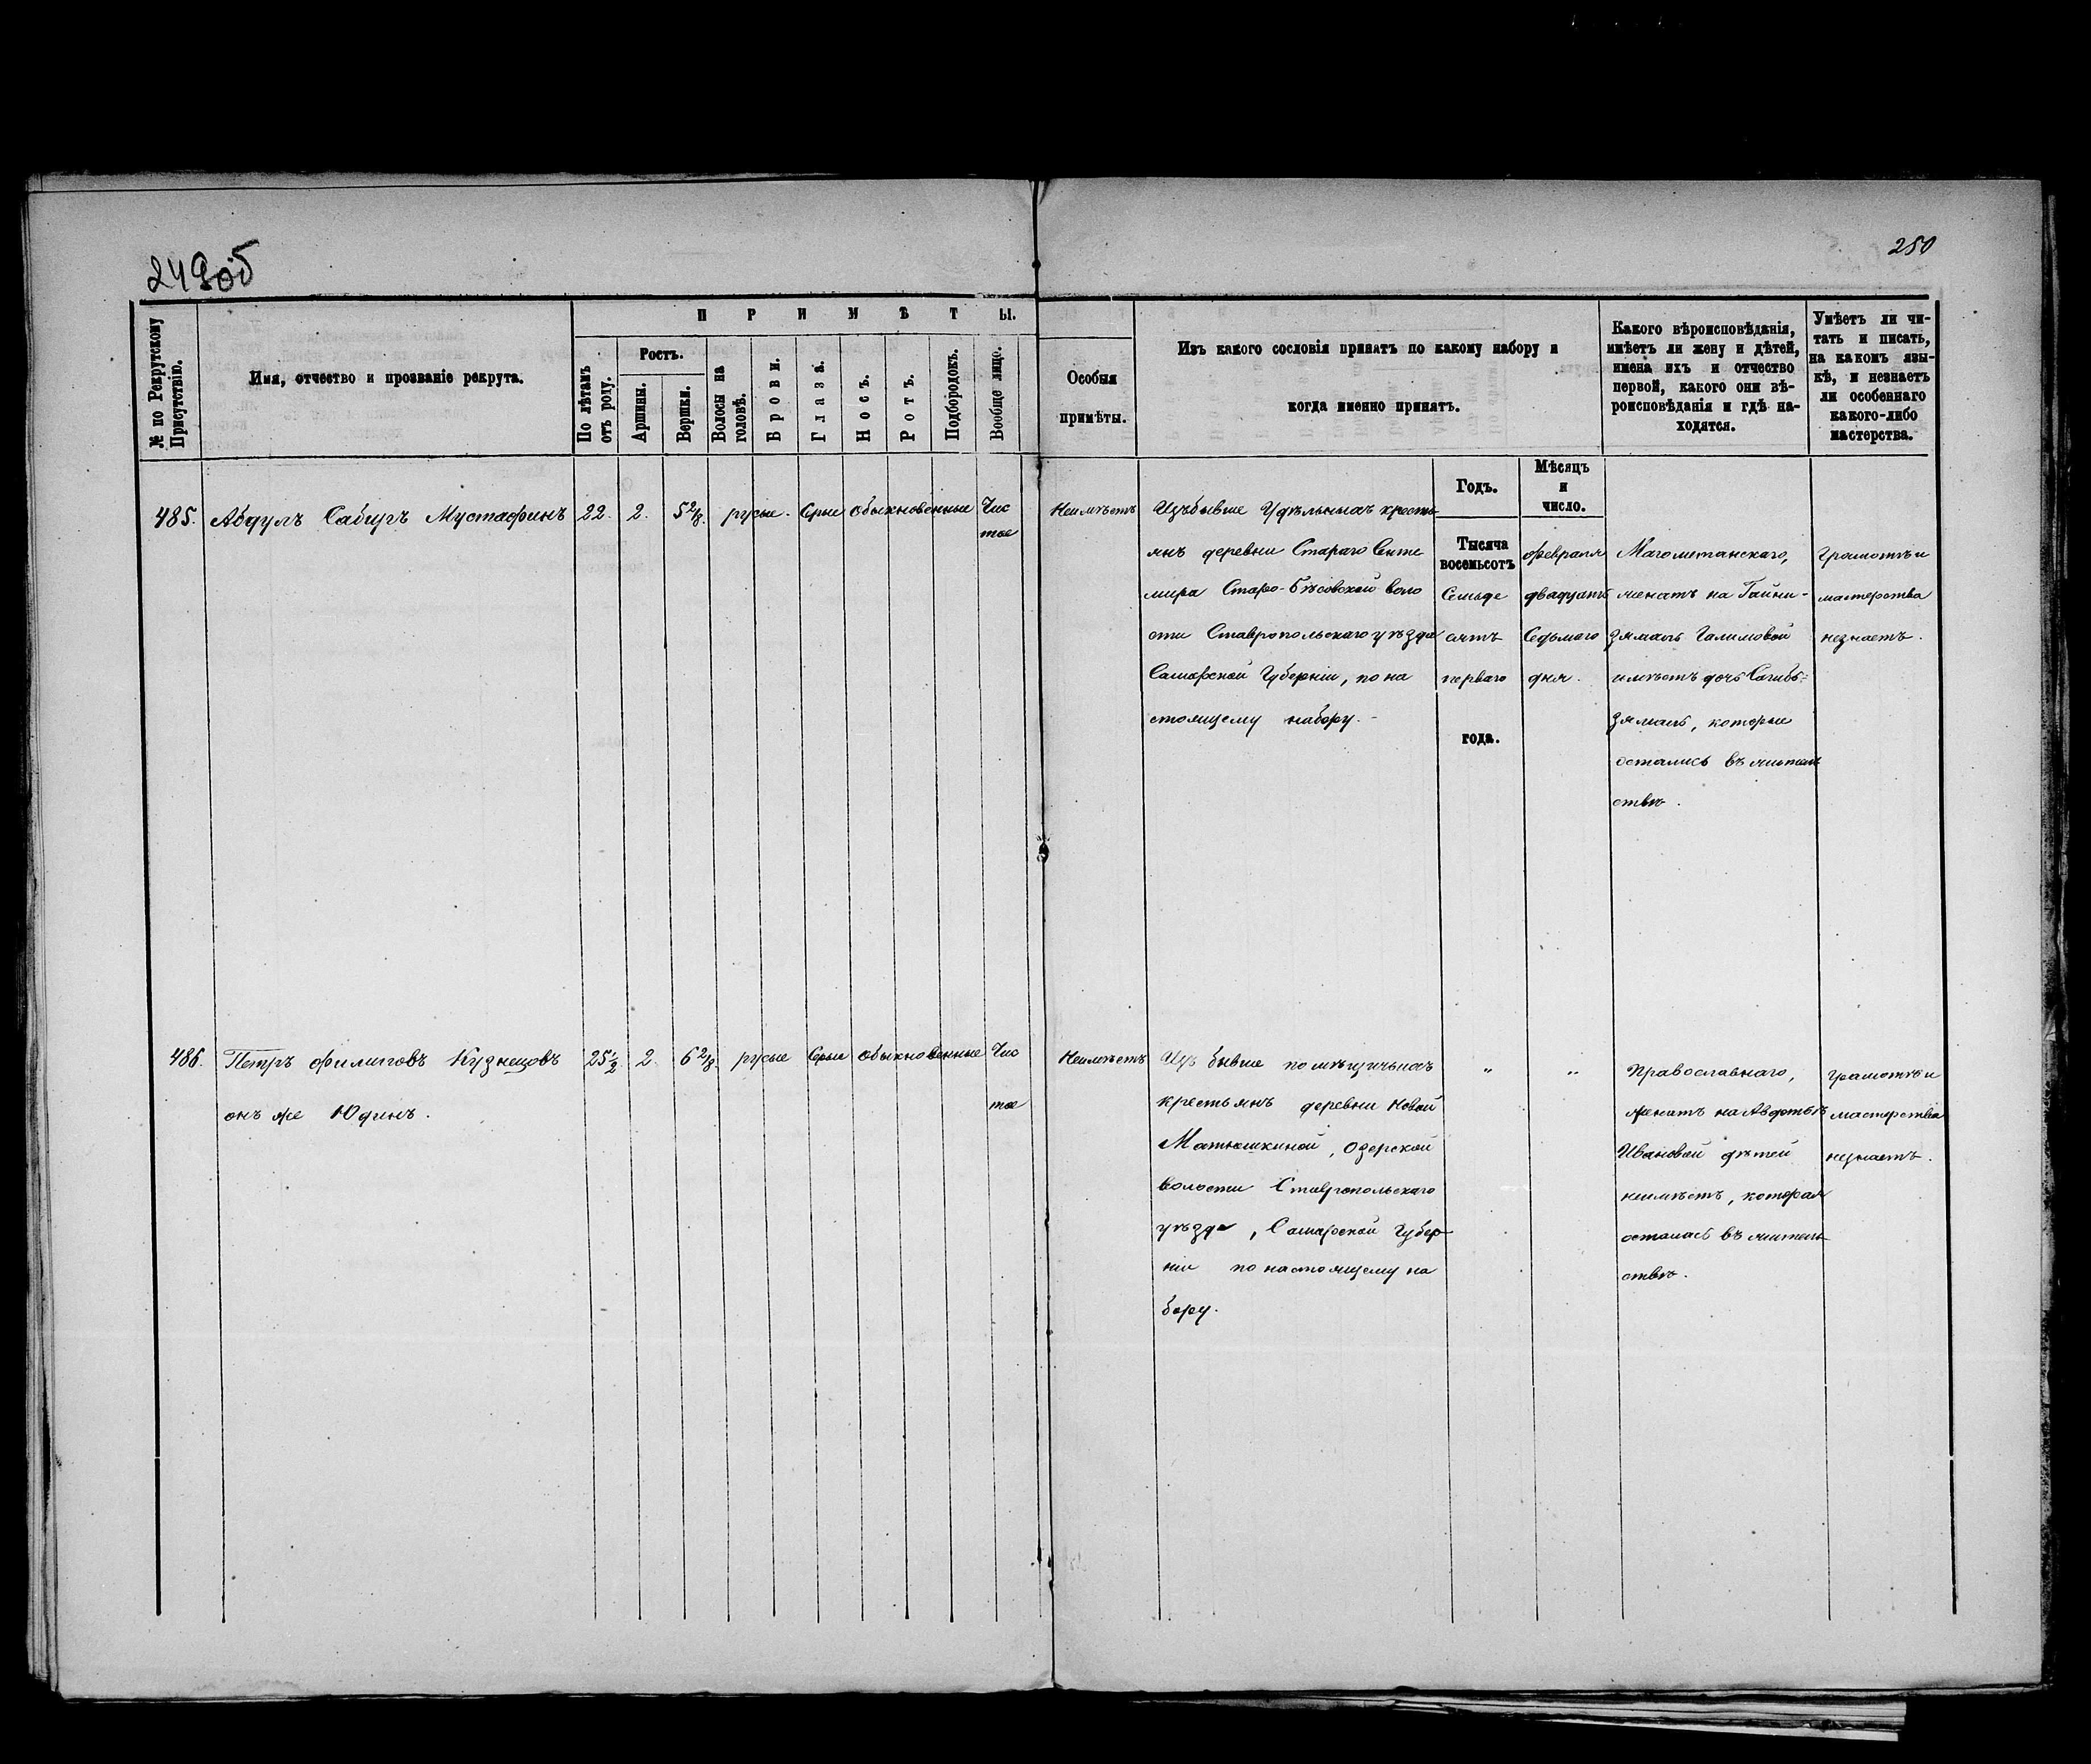 249об
250
№ по Рекрутскому Присутствію.
Имя, отчество и прозваніе рекрута.
ПРИМѢТЫ.
По лѣтамъ отъ роду.
Ростъ.
Аршины.
Вершки.
Волосы на головѣ.
Брови.
Глаза.
Носъ.
Ротъ.
Подбородокъ.
Вообще лице.
Особыя
примѣты.
Изъ какого сословія принатъ по какому набору и
когда именно принятъ.
Какого вѣроисповѣданія,
имѣетъ ли жену и дѣтей,
имена ихъ и отчество
первой, какого они вѣ-
роисповѣданія и гдѣ на-
ходятся.
Умѣетъ ли чи-
тать и писать,
на какомъ язы-
кѣ, и незнаетъ
ли особеннаго
какого-либо
мастерства.
Годъ.
Мѣсяцъ
и
число.
485. Абдулъ Сабигъ Мустафинъ 22. 2. 5 2/8. русые. Серые Обыкновенные Чис
тое
Неимѣетъ
Изъ бывше Удѣльныхъ кресть
янъ деревни Стараго Сенте
мира Старо-Бѣсовской воло
сти Ставропольскаго уѣзда
Самарской Губерніи, по на
стоящему набору.
Тысяча
восемьсотъ
Семьде
сятъ
перваго
года.
февраля
двадцать
Седьмаго
дня.
Магометанскаго,
женатъ на Гайни-
зямаль Галимовой
имѣетъ дочь Сагибъ-
зямаль, которые
остались въ житель
ствѣ.
Грамотѣ и
мастерства
незнаетъ.
486. Петръ Филиповъ Кузнецовъ 25 1/2 2. 6 2/8. русые Серые Обыкновенные Чис
онъ же Юдинъ.
тое
Неимѣетъ
Изъ бывше помѣщичьихъ
крестьянъ деревни Новой
Матюшкиной, Озерской
волости Ставропольскаго
уѣзда, Самарской Губер-
ніи по настоящему на
бору.
"
"
Православнаго,
женатъ на Авдотьѣ
Ивановой дѣтей
неимѣетъ, которая
осталась въ житель-
ствѣ.
Грамотѣ и
мастерства
незнаетъ.